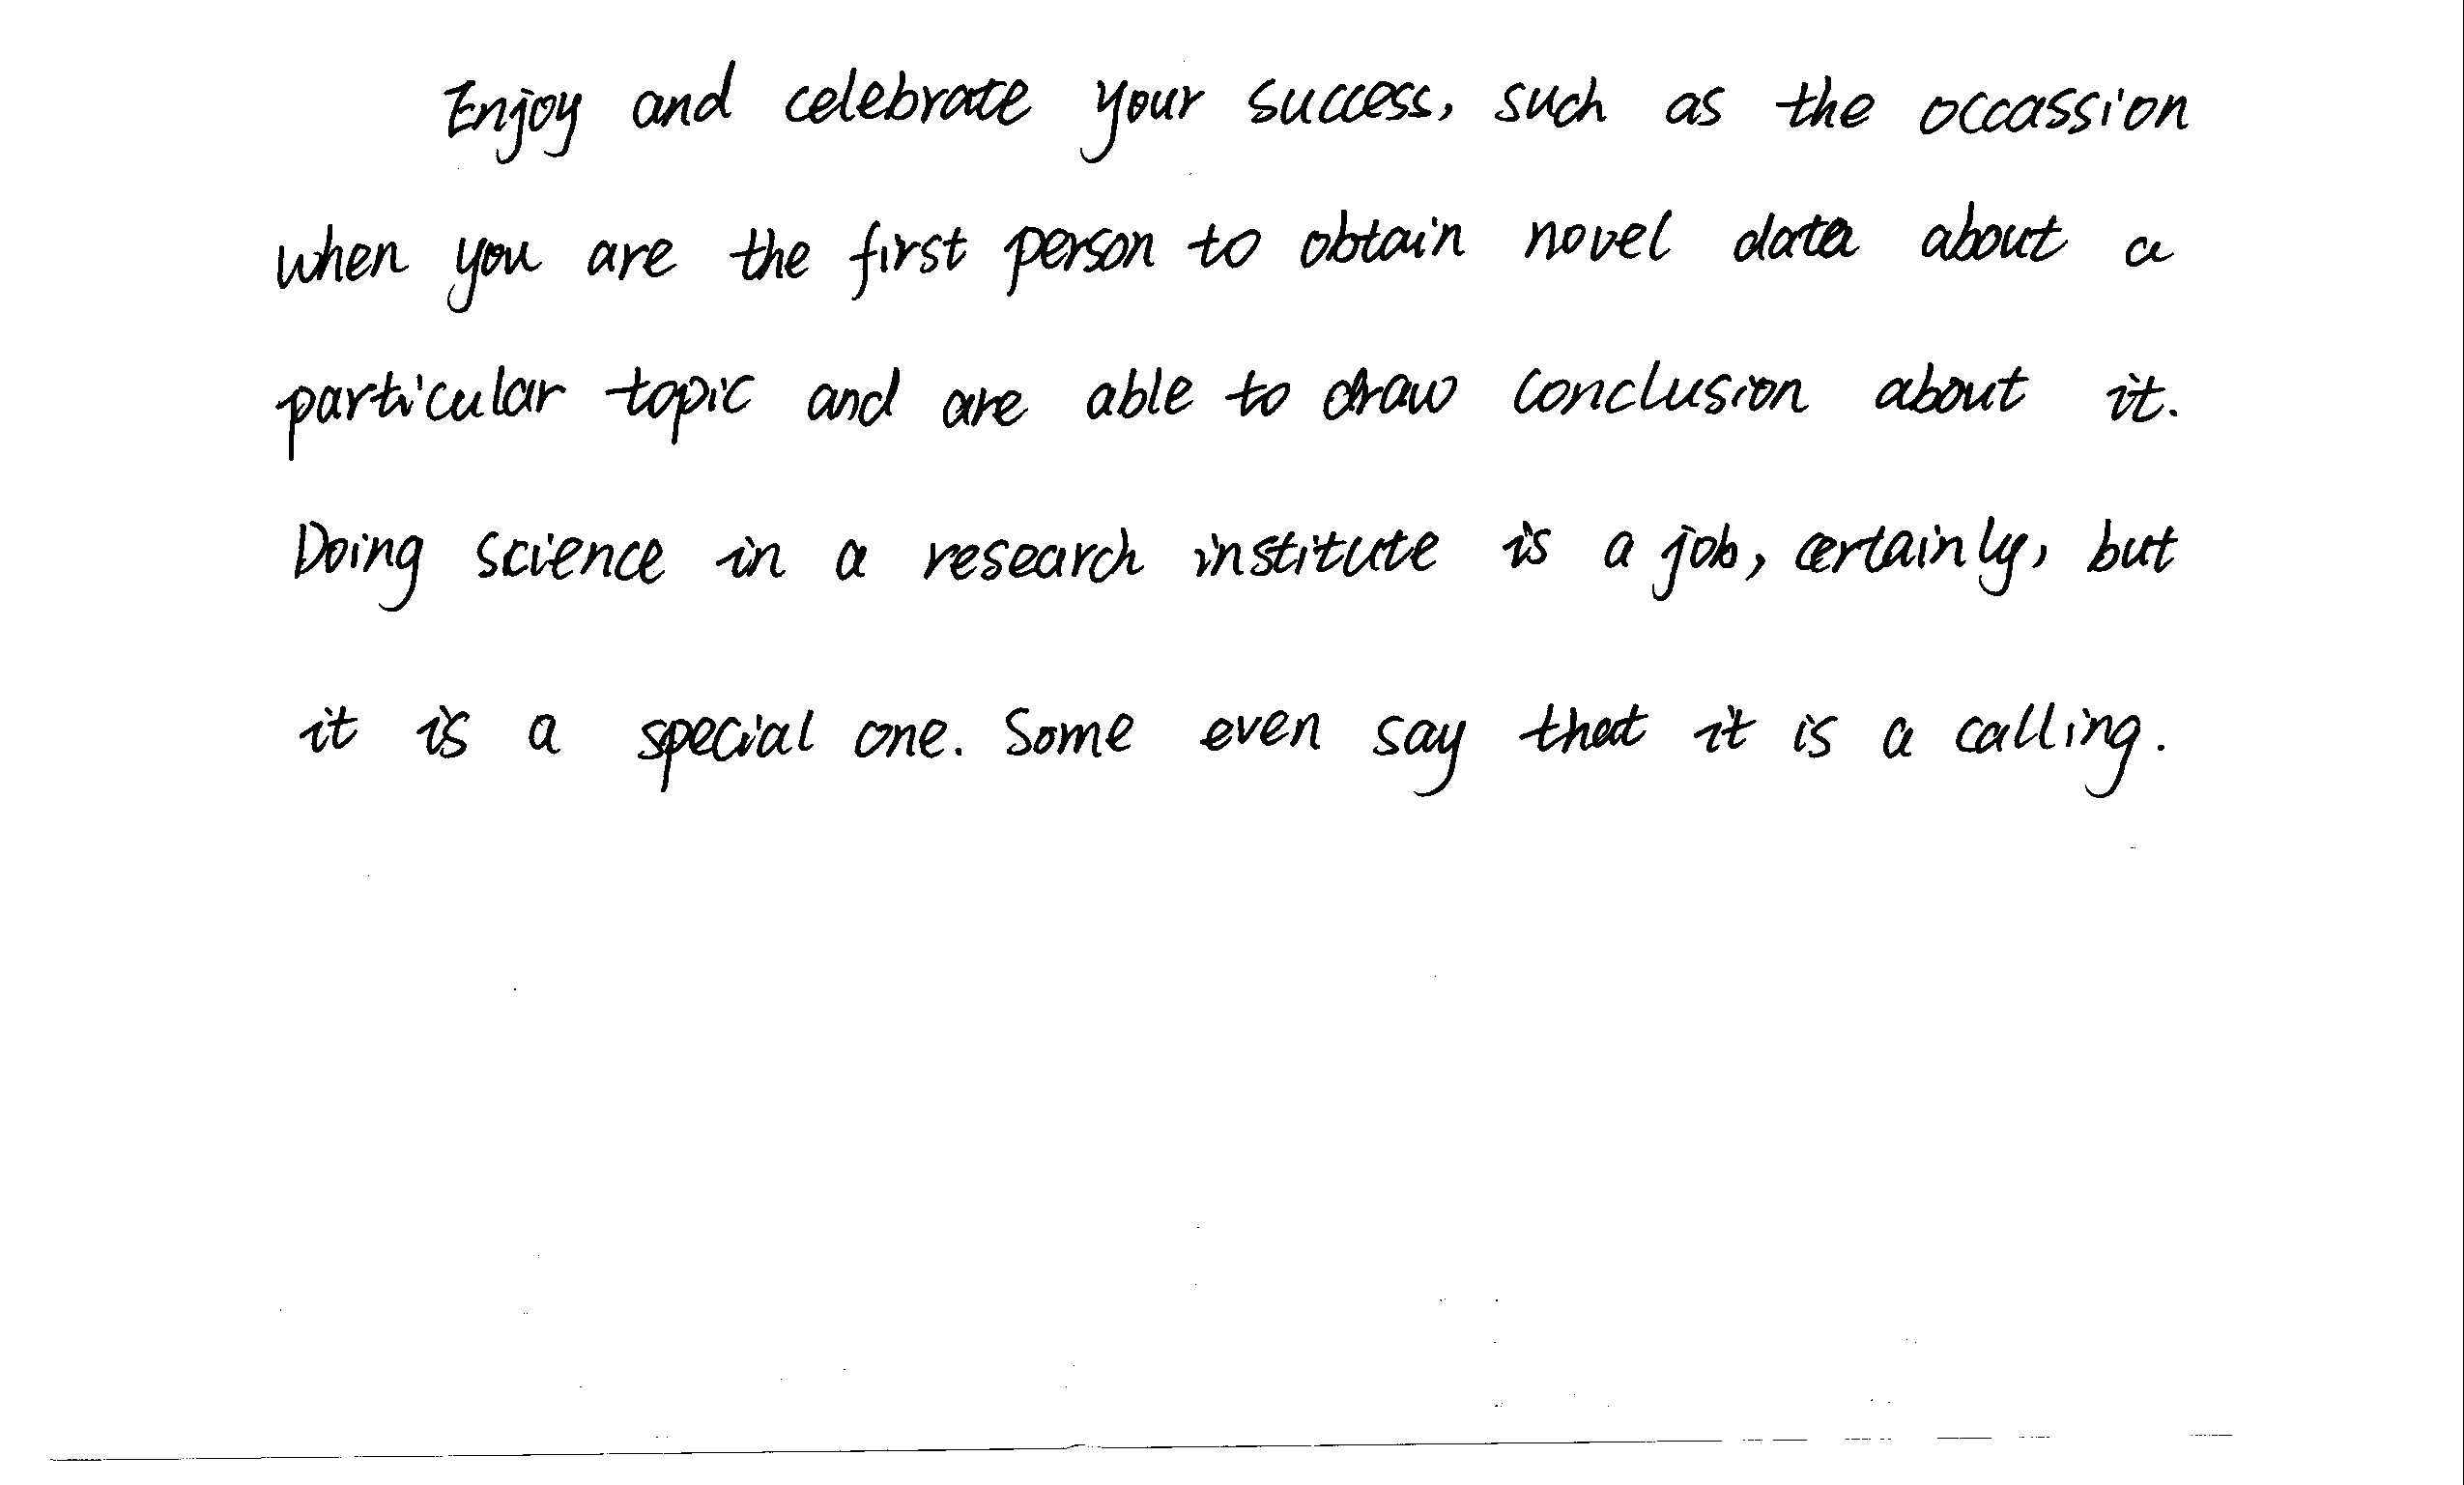 Enjoy and celebrate your success, such as the occassion
when you are the first person to obtain novel data about a
particular topic and are able to draw conclusion about it.
Doing science in a research institute is a job, certainly, but
it is a special one. Some even say that it is a calling.